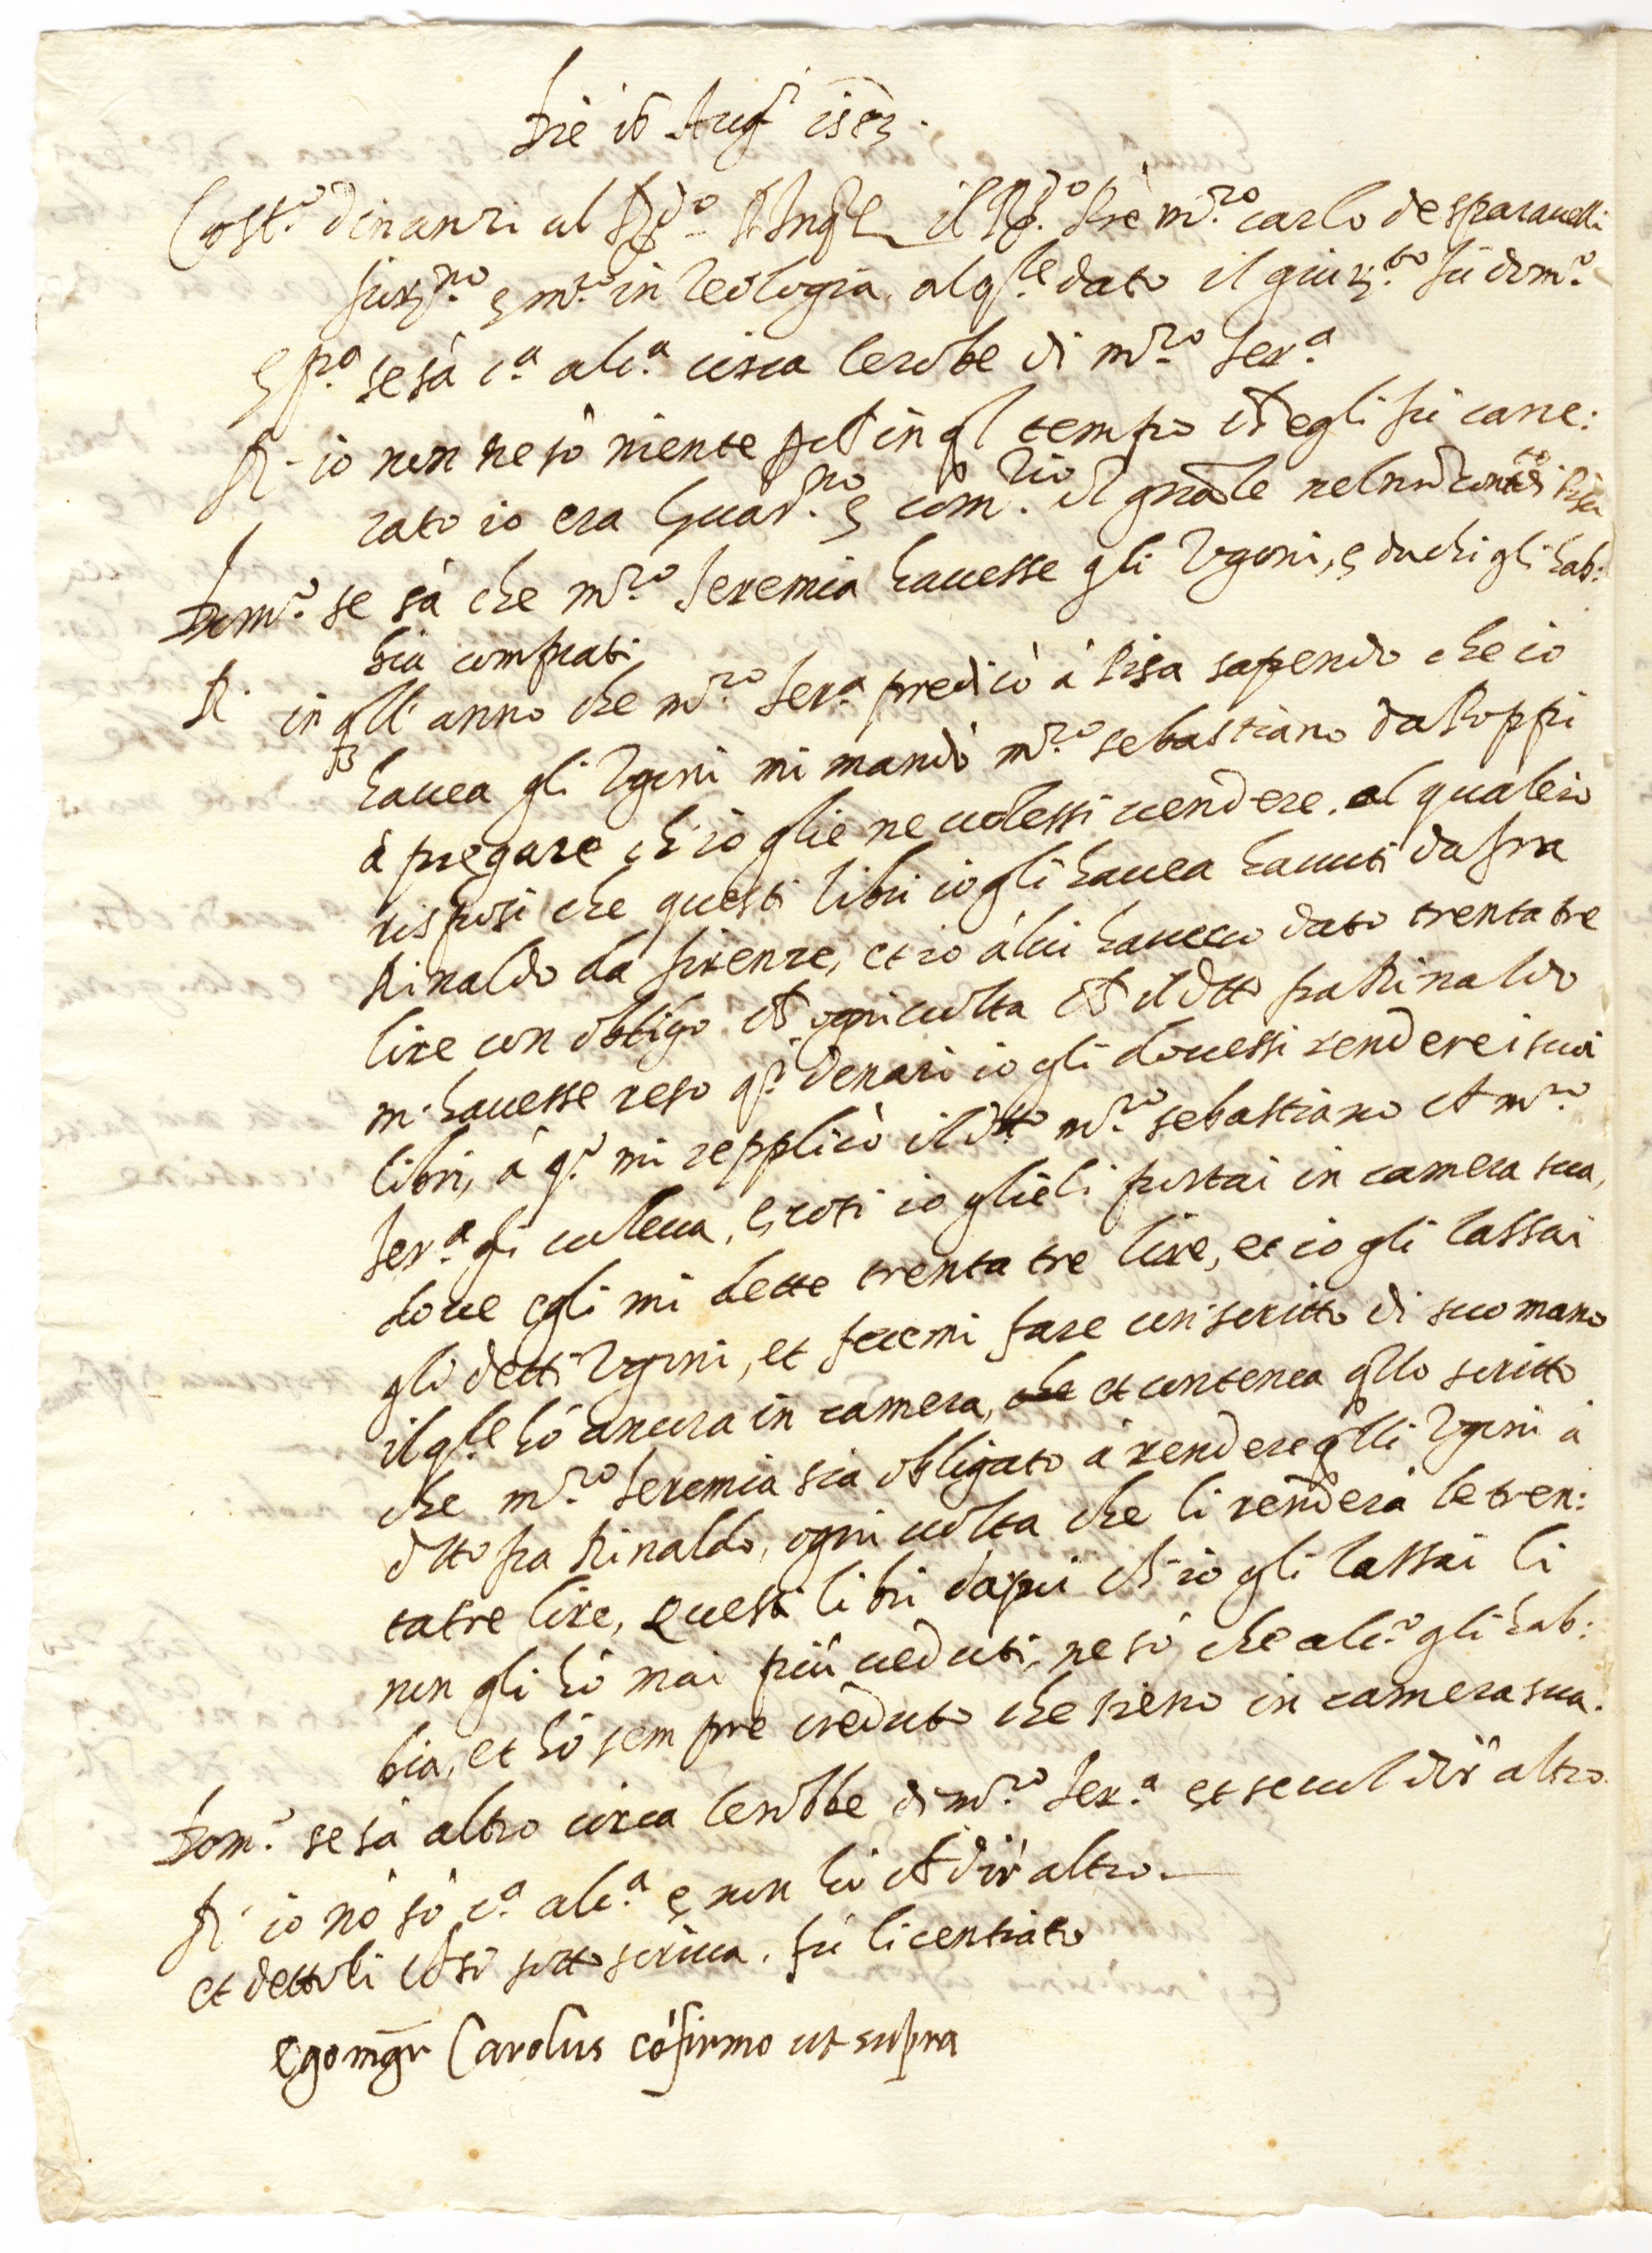 Die 16 Aug.ti 1583.
Cost.o dinanzi al R.do P. Inq.re il R.do Prè m.ro Carlo de Sparavelli
fior.no e m.ro in Teologia, al q.le dato il giur.to fu dom.o
e p.a se sà c.a alc.a circa le robbe di m.ro Jer.a
R. io non ne sò niente p.ch in q.l tempo ch egli fu carce:
rato io era Guar.no e com.rio g'nāle nel nr̃o conv.to di Pisa
Dom.o se sà che m.ro Jeremia havesse gli Ugoni, e da chi gli hab:
bia comprati
R. in q'll' anno che m.ro Jer.a predicò à Pisa sapendo che io
havea gli Ugoni mi mandò m.ro Sebastiano da Poppi
à pregare ch'io glie ne volessi vendere. al quale io
risposi che questi libri io gli havea havuti da fra
Rinaldo da firenze, et io à lui haveva dato trenta tre
lire con obbligo ch ogni volta ch il dtto fra Rinaldo
m'havesse reso q.i denari io gli dovessi rendere i suoi
libri, à q.o mi repplicò il dtto m.ro Sebastiano ch m.ro
Jer.a gli voleva, e così io glieli portai in camera sua,
dove egli mi dette trenta tre lire, et io gli lassai
gli detti Ugoni, et fecemi fare un scritto di suo mano
il q.le hò ancora in camera, che et contenea q'llo scritto
che m.ro Jeremia sia obligato à rendere q'lli Ugoni à
dtto fra Rinaldo, ogni volta che li renderà le tren:
ta tre lire, Questi libri dapoi ch'io gli lassai li
non gli hò mai più veduti, ne sò che alc.o gli hab:
bia, et hò sempre creduto che sieno in camera sua.
Dom.o se sà altro circa le robbe di m.ro Jer.a et se vuol dir altro
R. io nò sò c.a alc.a e non hò ch dir altro.
et dettoli ch si sottoscriva. fù licentiato
Ego mgr̃ Carolus cōfirmo ut supra